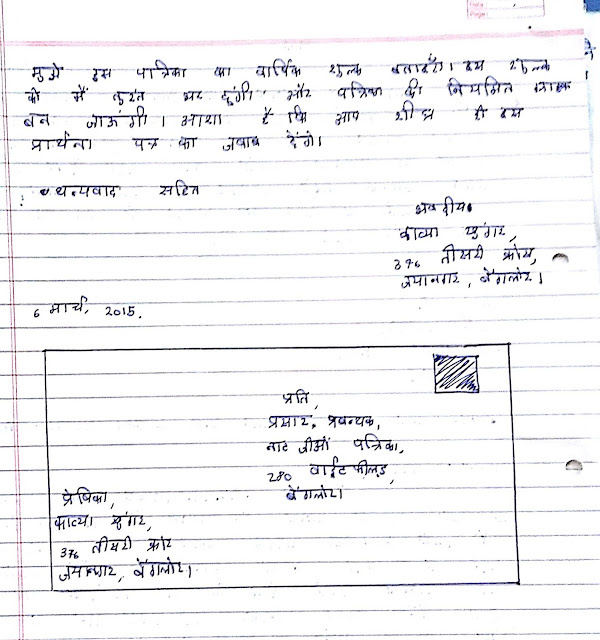 मुझे इस पात्रिका का वार्षिक शुल्क बताइएँ। इस शुल्क
को मैं तुरंत भर दूंगी और पत्रिका की नियमित ग्राहक
बन जाऊंगी। आशा है कि आप शीघ्र ही इस
प्रार्थना पत्र का जवाब देंगे।
धन्यवाद सहित
भवदीय
काव्या
376 तीसरी क्रोस,
जयानगर, बेंगलोर।
6 मार्च, 2015.
प्रति,
प्रसार, प्रबन्धक,
पत्रिका,
280 वाईटफील्ड,
बेंगलोर।
प्रेषिका,
काव्या
376 तीसरी क्रोर
जयानगर, बेंगलोर।